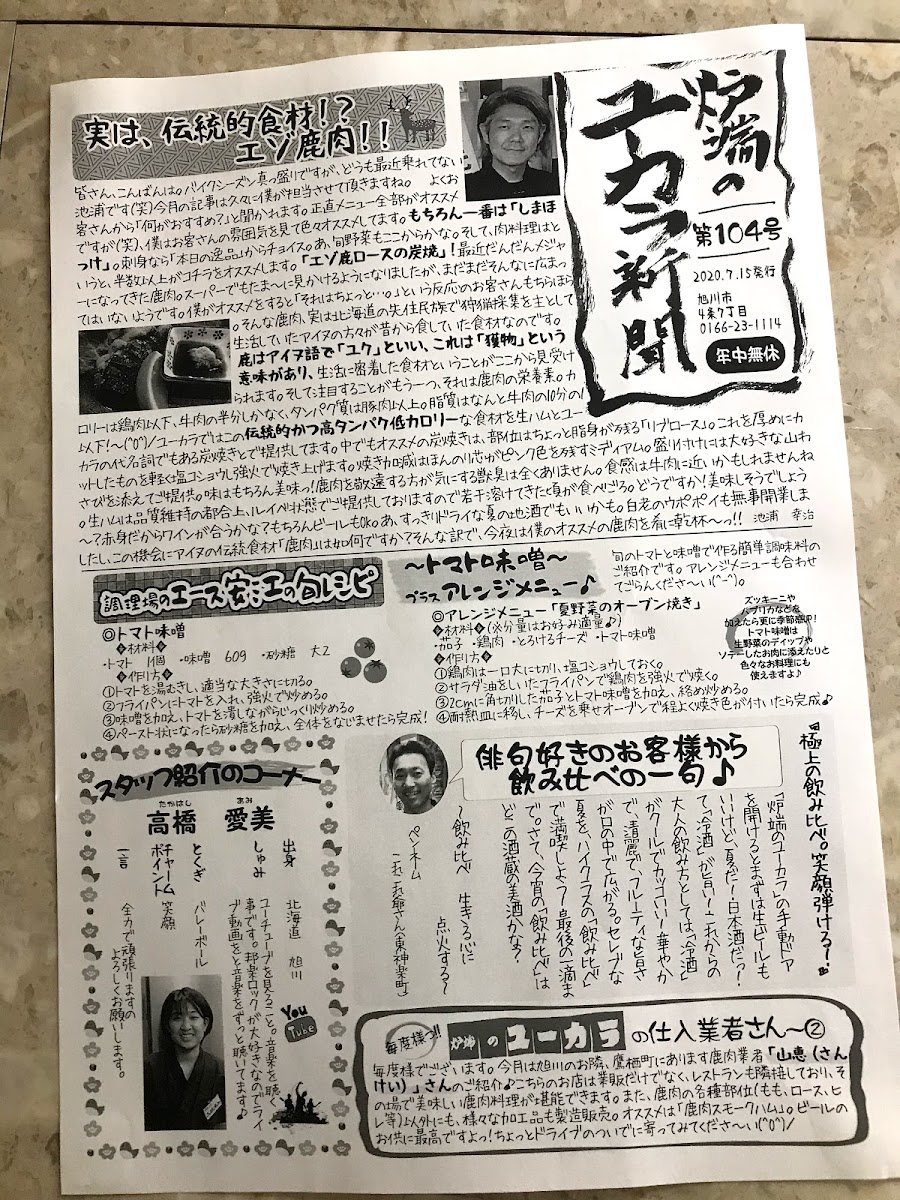 炉端の
ユーカラ新聞
第104号
2020.7.15発行
旭川市
4条7丁目
0166-23-1114
年中無休
実は、伝統的食材!?
エゾ鹿肉!!
皆さん、こんばんは。バイクシーズン真っ盛りですが、どうも最近乗れてない
池浦です(笑)今月の記事は久々に僕が担当させて頂きますね。 よくお
客さんから「何がおすすめ?」と聞かれます。正直メニュー全部がオススメ
ですが(笑)、僕はお客さんの雰囲気を見て色々オススメしてます。もちろん一番は「しまほ
っけ」。刺身なら「本日の逸品」からチョイス。あ、旬野菜もここからかな。そして、肉料理はと
いうと、半数以上がコチラをオススメします。「エゾ鹿ロースの炭焼」!最近だんだんメジャ
ーになってきた鹿肉。スーパーでもたま〜に見かけるようになりましたが、まだまだそんなに広まっ
てはいないようです。僕がオススメをすると「それはちょっと…。」という反応のお客さんもちらほら
。そんな鹿肉、実は北海道の先住民族で狩猟採集を主として
生活していたアイヌの方々が昔から食していた食材なのです。
鹿はアイヌ語で「ユク」といい、これは「獲物」という
意味があり、生活に密着した食材ということがここから見受け
られます。そして注目することがもう一つ、それは鹿肉の栄養素。カ
ロリーは鶏肉以下、牛肉の半分しかなく、タンパク質は豚肉以上。脂質はなんと牛肉の10分の1
以下!〜(^0^)/ユーカラではこの伝統的かつ高タンパク低カロリーな食材を生ハムとユー
カラの代名詞でもある炭焼きとで提供してます。中でもオススメの炭焼きは、部位はちょっと脂身が残る「リブロース」。これを厚めにカ
ットしたものを軽く塩コショウし強火で焼き上げます。焼き加減はほんのり芯がピンク色を残すミディアム。盛り付けには大好きな山わ
さびを添えてご提供。味はもちろん美味っ!鹿肉を敬遠する方が気にする獣臭は全くありません。食感は牛肉に近いかもしれませんね
。生ハムは品質維持の都合上、ルイベ状態でご提供しておりますので若干溶けてきた頃が食べごろ。どうですか!美味しそうでしょう
〜?赤身だからワインが合うかな?もちろんビールもok。あ、すっきりドライな夏の地酒でもいいかも。白老のウポポイも無事開業しま
したし、この機会にアイヌの伝統食材「鹿肉」は如何ですか?そんな訳で、今夜は僕のオススメの鹿肉を肴に乾杯〜っ!! 池浦 幸治
調理場のエース安江の旬レシピ
〜トマト味噌〜
プラスアレンジメニュー♪
旬のトマトと味噌で作る簡単調味料の
ご紹介です。アレンジメニューも合わせ
てごらんくださ〜い(^-^)。
◎トマト味噌
◆材料◆
・トマト 1個 ・味噌 60g ・砂糖 大2
◆作り方◆
①トマトを湯むきし、適当な大きさに切る。
②フライパンにトマトを入れ、強火で炒める。
③味噌を加え、トマトを潰しながらじっくり炒める。
④ペースト状になったら砂糖を加え、全体をなじませたら完成!
◎アレンジメニュー「夏野菜のオーブン焼き」
◆材料◆(※分量はお好み適量♪)
・茄子 ・鶏肉 ・とろけるチーズ ・トマト味噌
◆作り方◆
①鶏肉は一口大に切り、塩コショウしておく。
②サラダ油をしいたフライパンで鶏肉を強火で焼く。
③2cmに角切りした茄子とトマト味噌を加え、絡め炒める。
④耐熱皿に移し、チーズを乗せオーブンで程よく焼き色が付いたら完成♪
ズッキーニや
パプリカなどを
加えたら更に季節感UP!
トマト味噌は
生野菜のディップや
ソテーしたお肉に添えたりと
色々なお料理にも
使えますよ♪
スタッフ紹介のコーナー
たかはし あみ
高橋 愛美
出身 北海道 旭川
しゅみ ユーチューブを見ること。音楽を聴く
事です。邦楽ロックが大好きなのでライ
ブ動画をと音楽をずっと聴いてます♪
とくぎ バレーボール
チャームポイント 笑顔
一言 全力で頑張りますの
よろしくお願いします。
You Tube
俳句好きのお客様から
飲み比べの一句♪
『極上の飲み比べ。笑顔弾ける!』
「炉端のユーカラ」の手動ドア
を開けるとまずは生ビールも
いいけど、夏だ!日本酒だっ!
て、「冷酒」が旨い!これからの
大人の飲み方としては、「冷酒」
がクールでカッコいい!華やか
で、清麗で、フルーティな旨さ
が口の中で広がる。セレブな
夏を、ハイクラスの「飲み比べ」
で満喫しよう?最後の一滴ま
で。さて、今宵の「飲み比べ」は
どこの酒蔵の美酒かな?
〜飲み比べ 生きる心に 点火する〜
ペンネーム
これこれ爺さん(東神楽町)
毎度様っ!!
炉端のユーカラの仕入業者さん〜②
毎度様でございます。今月は旭川のお隣、鷹栖町にあります鹿肉業者「山恵(さん
けい)」さんのご紹介♪こちらのお店は業販だけでなく、レストランも隣接しており、そ
の場で美味しい鹿肉料理が堪能できます。また、鹿肉の各種部位(もも、ロース、ヒ
レ等)以外にも、様々な加工品も製造販売。オススメは「鹿肉スモークハム」。ビールの
お供に最高ですよっ!ちょっとドライブのついでに寄ってみてくださ〜い(^0^)/